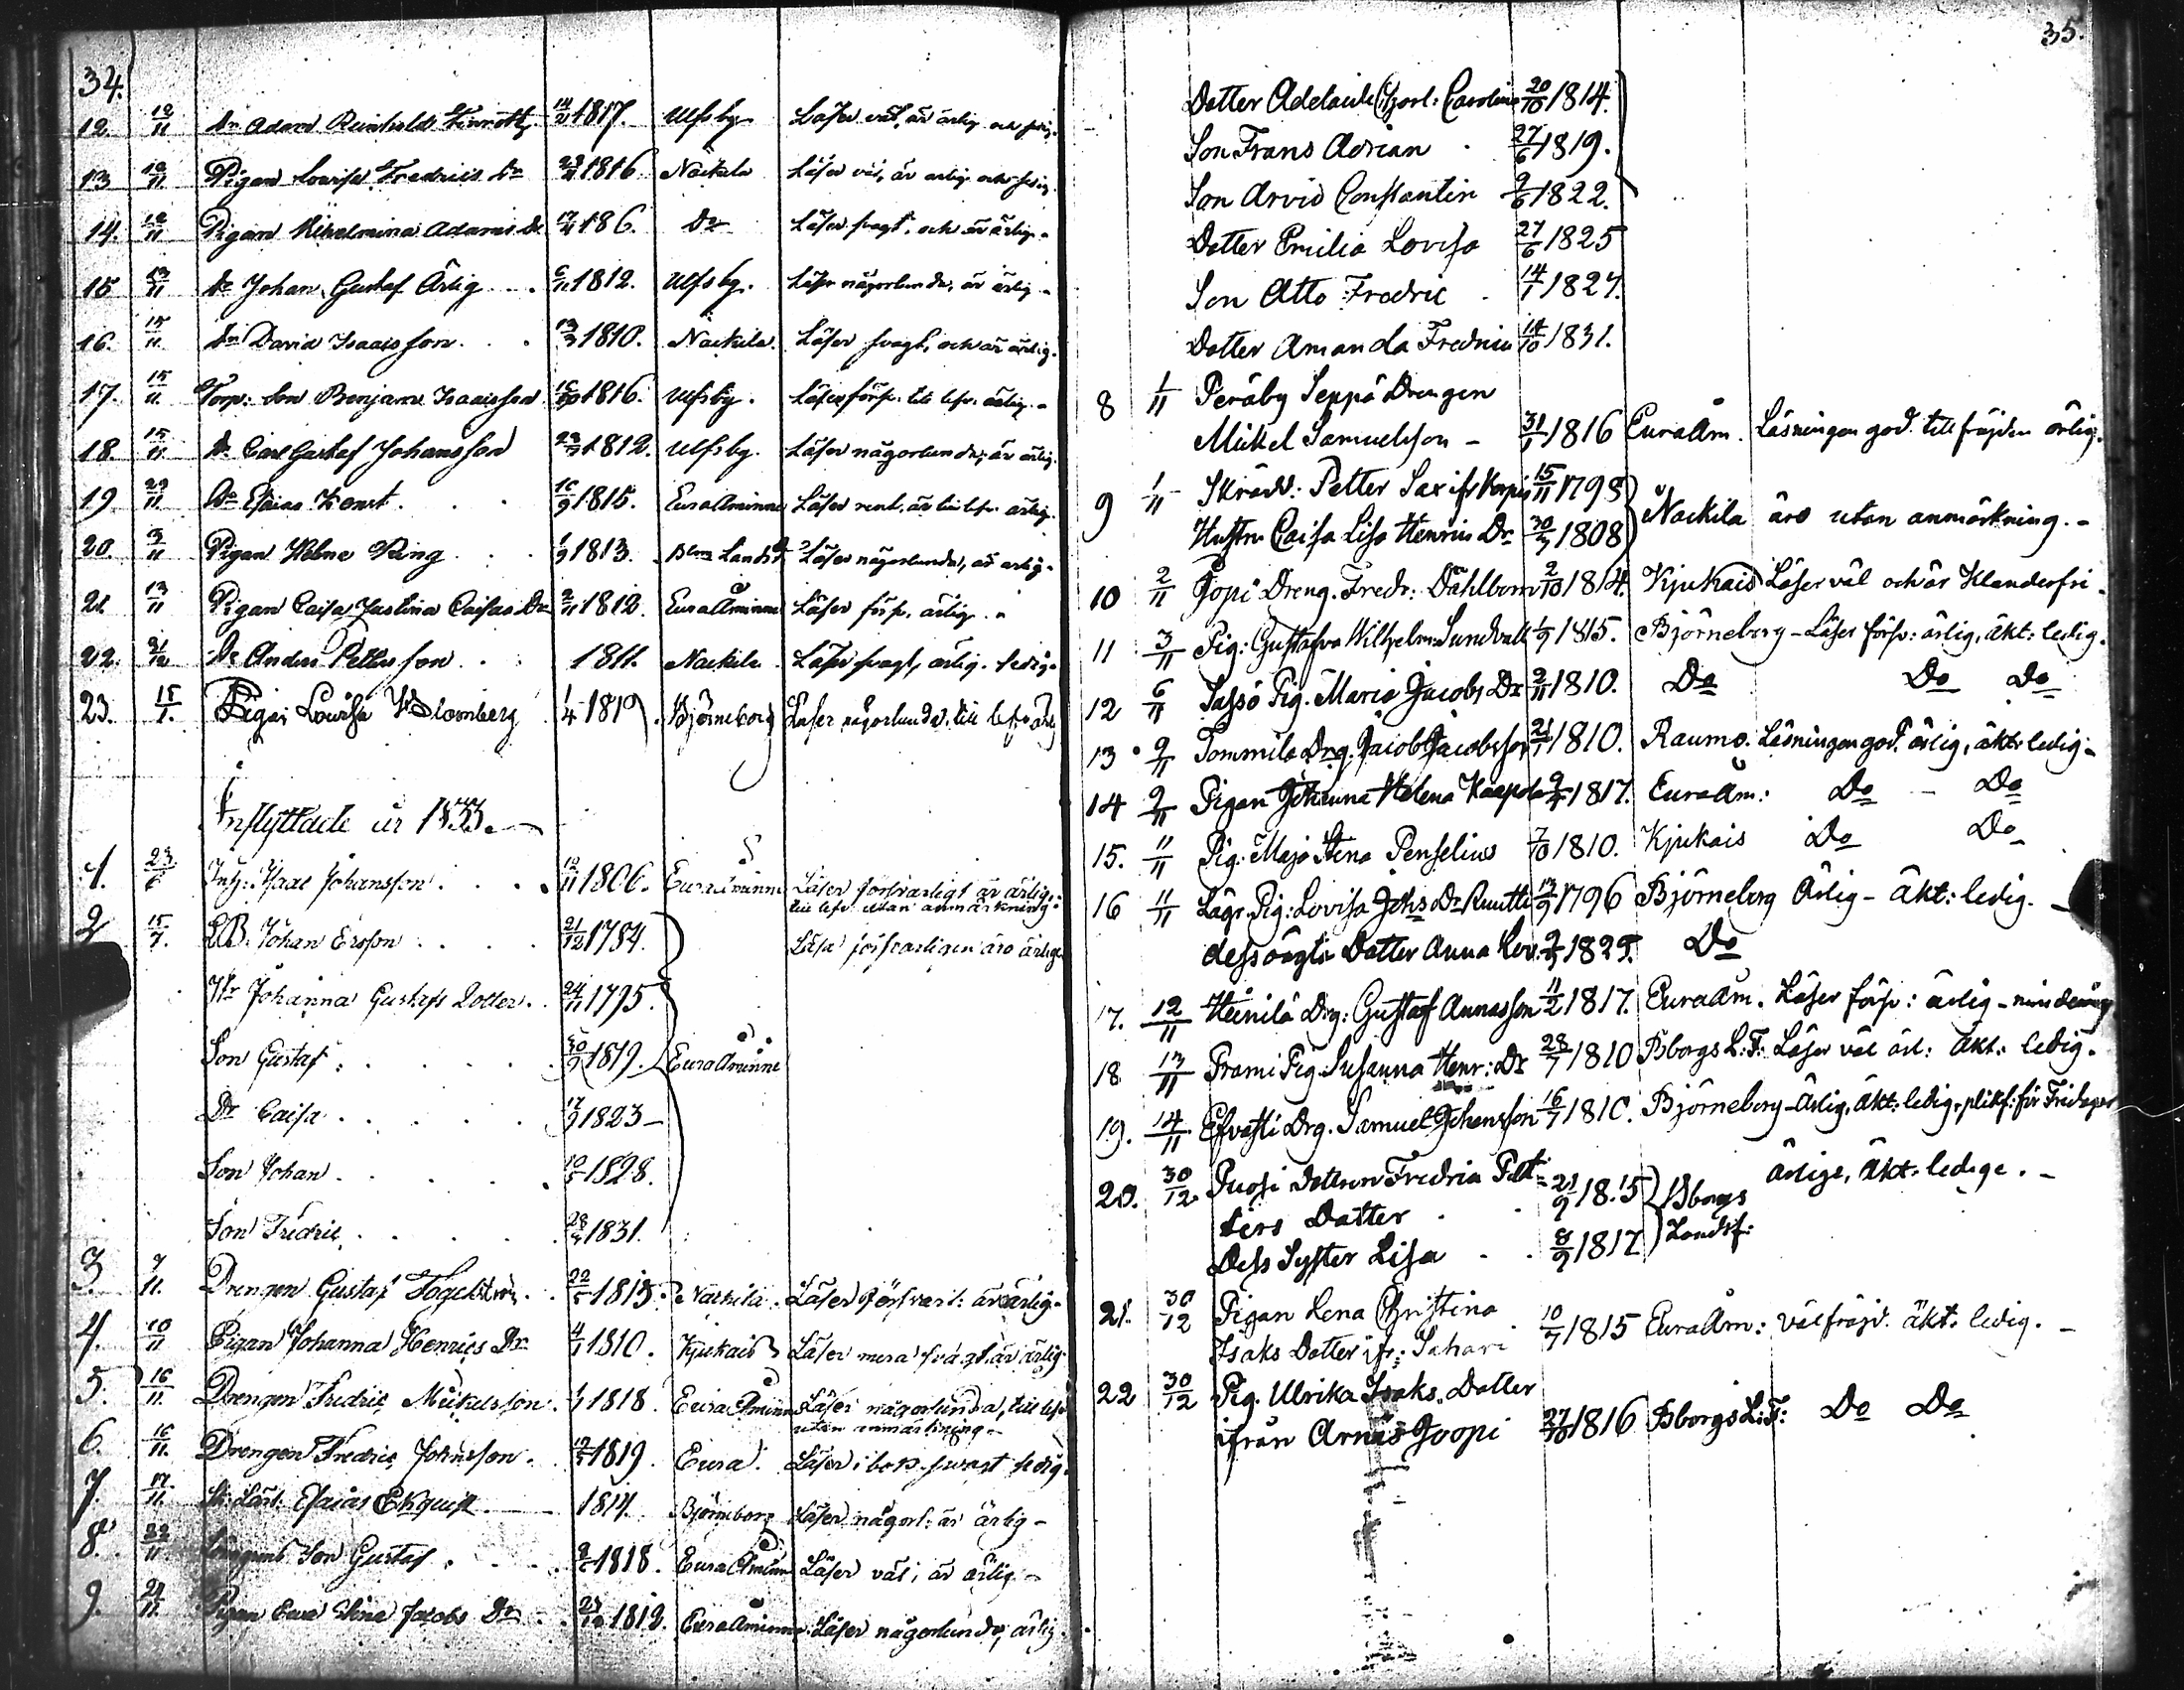 34.
12. 12/11 Dr Adam Reinhold 14/2 1817. Ulfsby Läser väl, är ärlig och ledig.
13 12/11 Pigan Lovisa Fredrics Dr 1816 Nackila Läser väl, är ärlig och ledig.
14. 12/11 Pigan Wilhelmina Adams Dr 186. Do Läser svagt, och är ärlig.
15 13/11 Dr Johan Gustaf Ärlig 1812. Ulfsby. Läser någorlunda, är ärlig.
16. 15/11 Dr David Isaacsson. 13/3 1810. Nackila. Läser svagt, och är ärlig.
17. 15/11 Torp: Son Benjam Isaacsson 1816. Ulfsby. Läser förs. till lefv. ärlig.
18. 15/11 Dr Carl Gustaf Johansson 1812. Ulfsby. Läser någorlunda, är ärlig.
19. 29/11 Do Esaias 16/9 1815. Euraåminne Läser rent, är till lefv. ärlig.
20. 3/11 Pigan Helene Ring 1/9 1813. Landsf. Läser någorlunda, är ärlig.
21. 13/11 Pigan Caisa Justina Caisas Dr 2/11 1812. Euraåminne Läser förs. ärlig.
22. 21/12 Dr Anders Pettersson. 1811. Nackila Läser svagt, ärlig. ledig.
23. 15/1. Pigan Lovisa Blomberg 1/4 1819. Björneborg Läser någorlunda, till lefv. ärlig
Inflyttade år 1833.
1. 23/6 Inh: Isaac Johansson. 12/11 1806. Euraåminne Läser försvarligt är ärlig.
till lefv. utan anmärkning.
2 15/7. Johan Ersson 21/12 1784. Läsa försvarligen äro ärlige
Hr Johanna Gustafs Dotter. 24/11 1795.
Son Gustaf. 30/9 1819. Euraåminne
Dr Caisa 17/9 1823
Son Johan 19/5 1828.
Son Fredric 28/2 1831.
3. 9/11. Drengen Gustaf 22/5 1813. Nackila. Läser försvarl: är ärlig.
4. 10/11 Pigan Johanna Henrics Dr 4/1 1810. Kjukais Läser mera svagt. är ärlig
5. 16/11. Drengen Fredric Mickelsson. 1/7 1818. Euraåminne Läser någorlunda, till lefv
utan anmärkning.
6. 16/11. Drengen Fredric Johnsson. 1819. Eura. Läser i bok svagt ledig.
7. 17/11. Sk: Lärl: Esaias Ekquist 1814. Björneborg Läser någorl: är ärlig
8. 22/11. Son Gustaf 1818. Euraåminne Läser väl, är ärlig
9. 24/11. Pigan Eva Stina Jacobs Dr 1812. Euraåminne Läser någorlunda, ärlig.
35.
Dotter Adelaide Charl: Carolina 20/10 1814.
Son Frans Adrian 27/6 1819.
Son Arvid Constantin 2/6 1822.
Dotter Emilia Lovisa 27/6 1825
Son Otto Fredric 14/1 1827.
Dotter Amanda Fredrica 14/10 1831.
8 1/11 Peräby Seppä Drengen
Mickel Samuelsson 31/1 1816 Euraåm. Läsningen god. till fräjden ärlig.
9 1/11 Skrädd: Petter Sax ifr Korpis 15/11 1798
Hustru Caisa Lisa Henrics Dr 30/3 1808 Nackila äro utan anmärkning.
10 2/11 Jopi Dreng. Fredr: Dahlbom 2/10 1814. Kjukais Läser väl och är klanderfri
11 3/11 Pig: Gustafva Wilhelm: Sundvall 1/9 1815. Björneborg Läser förs: ärlig, äkt: ledig.
12 6/11 Sassö Pig. Maria Jacobs Dr 2/11 1810. Do Do Do
13 9/11 Tommila Drg. Jacob Jacobsson 21/1 1810. Raumo. Läsningen god. ärlig, äkt: ledig
14 9/11 Pigan Johanna Helena 1817. Euraåm: Do Do
15. 11/11 Pig. Maja Stena Penselius 7/10 1810. Kjukais Do Do
16 11/11 Lägr. Pig: Lovisa Johs Dr Ruutti 13/9 1796 Björneborg Ärlig äkt: ledig.
dess oägta Dotter Anna Lov. 1825. Do
17. 12/11 Heinilä Drg: Gustaf Annasson 11/2 1817. Euraåm. Läser förs: ärlig
18 13/11 Frami Pig. Susanna Henr: Dr 28/7 1810 Bborgs L:F: Läser väl ärl: äkt: ledig.
19. 14/11 Drg. Samuel Johansson 16/7 1810. Björneborg Ärlig, äkt: ledig
20. 30/12 Fredrica Pet-
ters Dotter 21/9 1815 Bborgs ärlige, äkt: ledige.
Dess Syster Lisa 8/9 1817 Landsf:
21. 30/12 Pigan Lena Christina
Isaks Dotter ifr: Sahari 10/7 1815 Euraåm: väl fräjd. äkt. ledig.
22 30/12 Pig. Ulrika Isaks Dotter
ifrån Arnäs Joopi 27/10 1816 BborgsL:F: Do Do